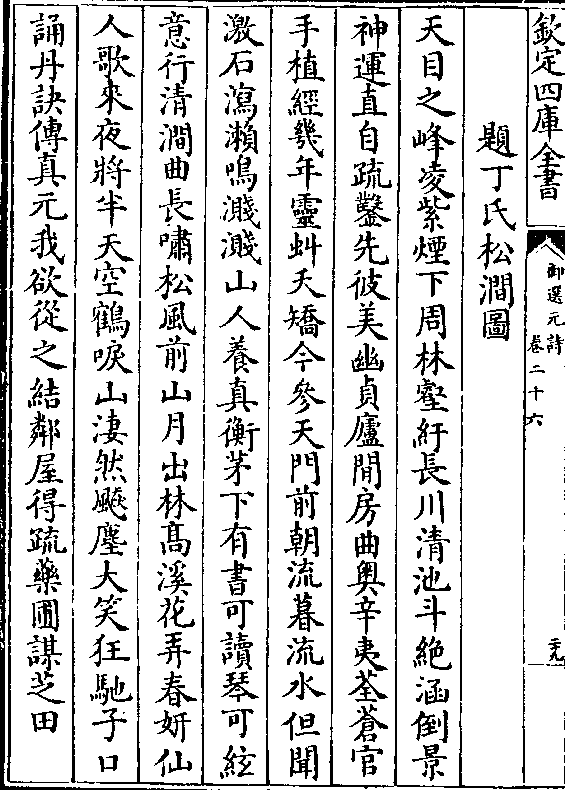 欽定四庫全書
御選元詩
卷二十六
二九
題丁氏松澗圖
天目之峰凌紫煙下周林壑紆長川清池斗絶涵倒景
神運直自疏鑿先彼美幽貞廬閒房曲奥辛夷荃蒼官
手植經幾年靈虯夭矯今參天門前朝流暮流水但聞
激石瀉瀨鳴濺濺山人養真衡茅下有書可讀琴可絃
意行清澗曲長嘯松風前山月出林髙溪花弄春妍仙
人歌來夜將半天空鶴唳山淒然飈塵大笑狂馳子口
誦丹訣傳真元我欲從之結鄰屋得疏藥圃謀芝田